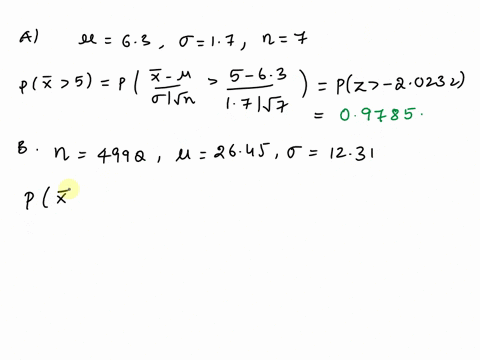 A) μ = 6.3 , σ = 1.7 , n = 7
P(x̄ > 5) = P( (x̄ - μ)/(σ/√n) > (5 - 6.3)/(1.7/√7) ) = P(z > -2.0232)
= 0.9785.
B. n = 4992 , μ = 26.45 , σ = 12.31
P( x̄